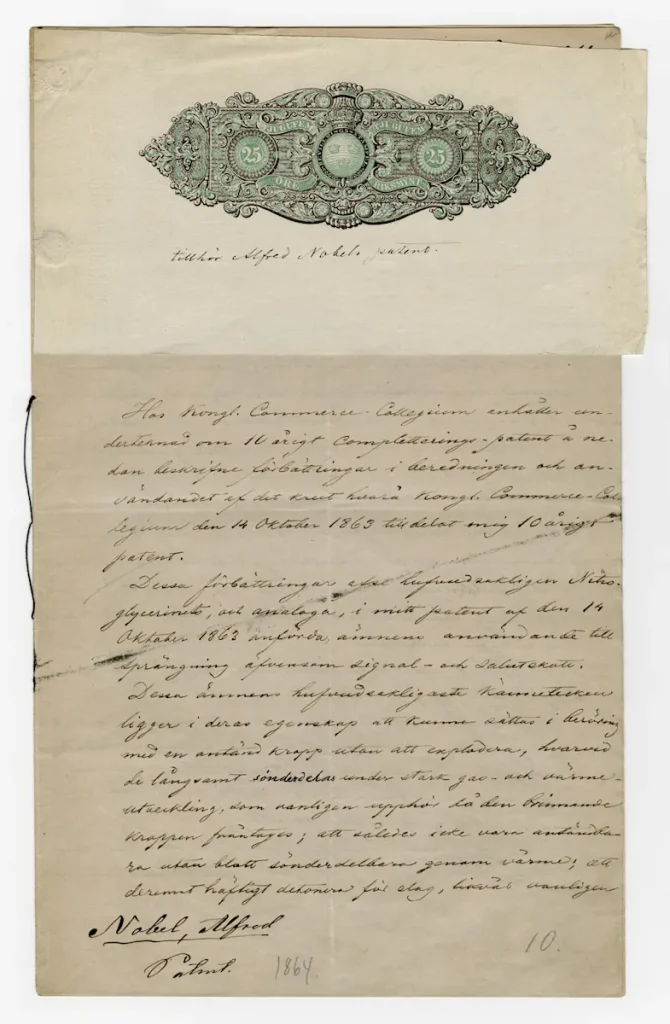 TJUGUFEM TJUGUFEM
25 25
ÖRE RIKSMYNT
tillhör Alfred Nobels patent.
Hos Kongl. Commerce-Collegium anhåller un-
dertecknad om 10 årigt Completterings-patent å ne-
dan beskrifne förbättringar i beredningen och an-
vändandet af det krut hvarå Kongl. Commerce-Col-
legium den 14 Oktober 1863 tilldelat mig 10 årigt
patent.
Dessa förbättringar afse hufvudsakligen Nitro-
glycerinets, och analoga, i mitt patent af den 14
Oktober 1863 anförda, ämnens användande till
sprängning äfvensom signal- och salutskott.
Dessa ämnens hufvudsakligaste kännetecken
ligger i deras egenskap att kunna sättas i beröring
med en antänd kropp utan att explodera, hvarvid
de långsamt sönderdelas under stark gas- och värme-
utveckling, som vanligen upphör då den brinnande
kroppen fråntages; att således icke vara antändba-
ra utan blott sönderdelbara genom värme; att
deremot häftigt detonera för slag, likväl vanligen
Nobel, Alfred
Patent. 1864. 10.